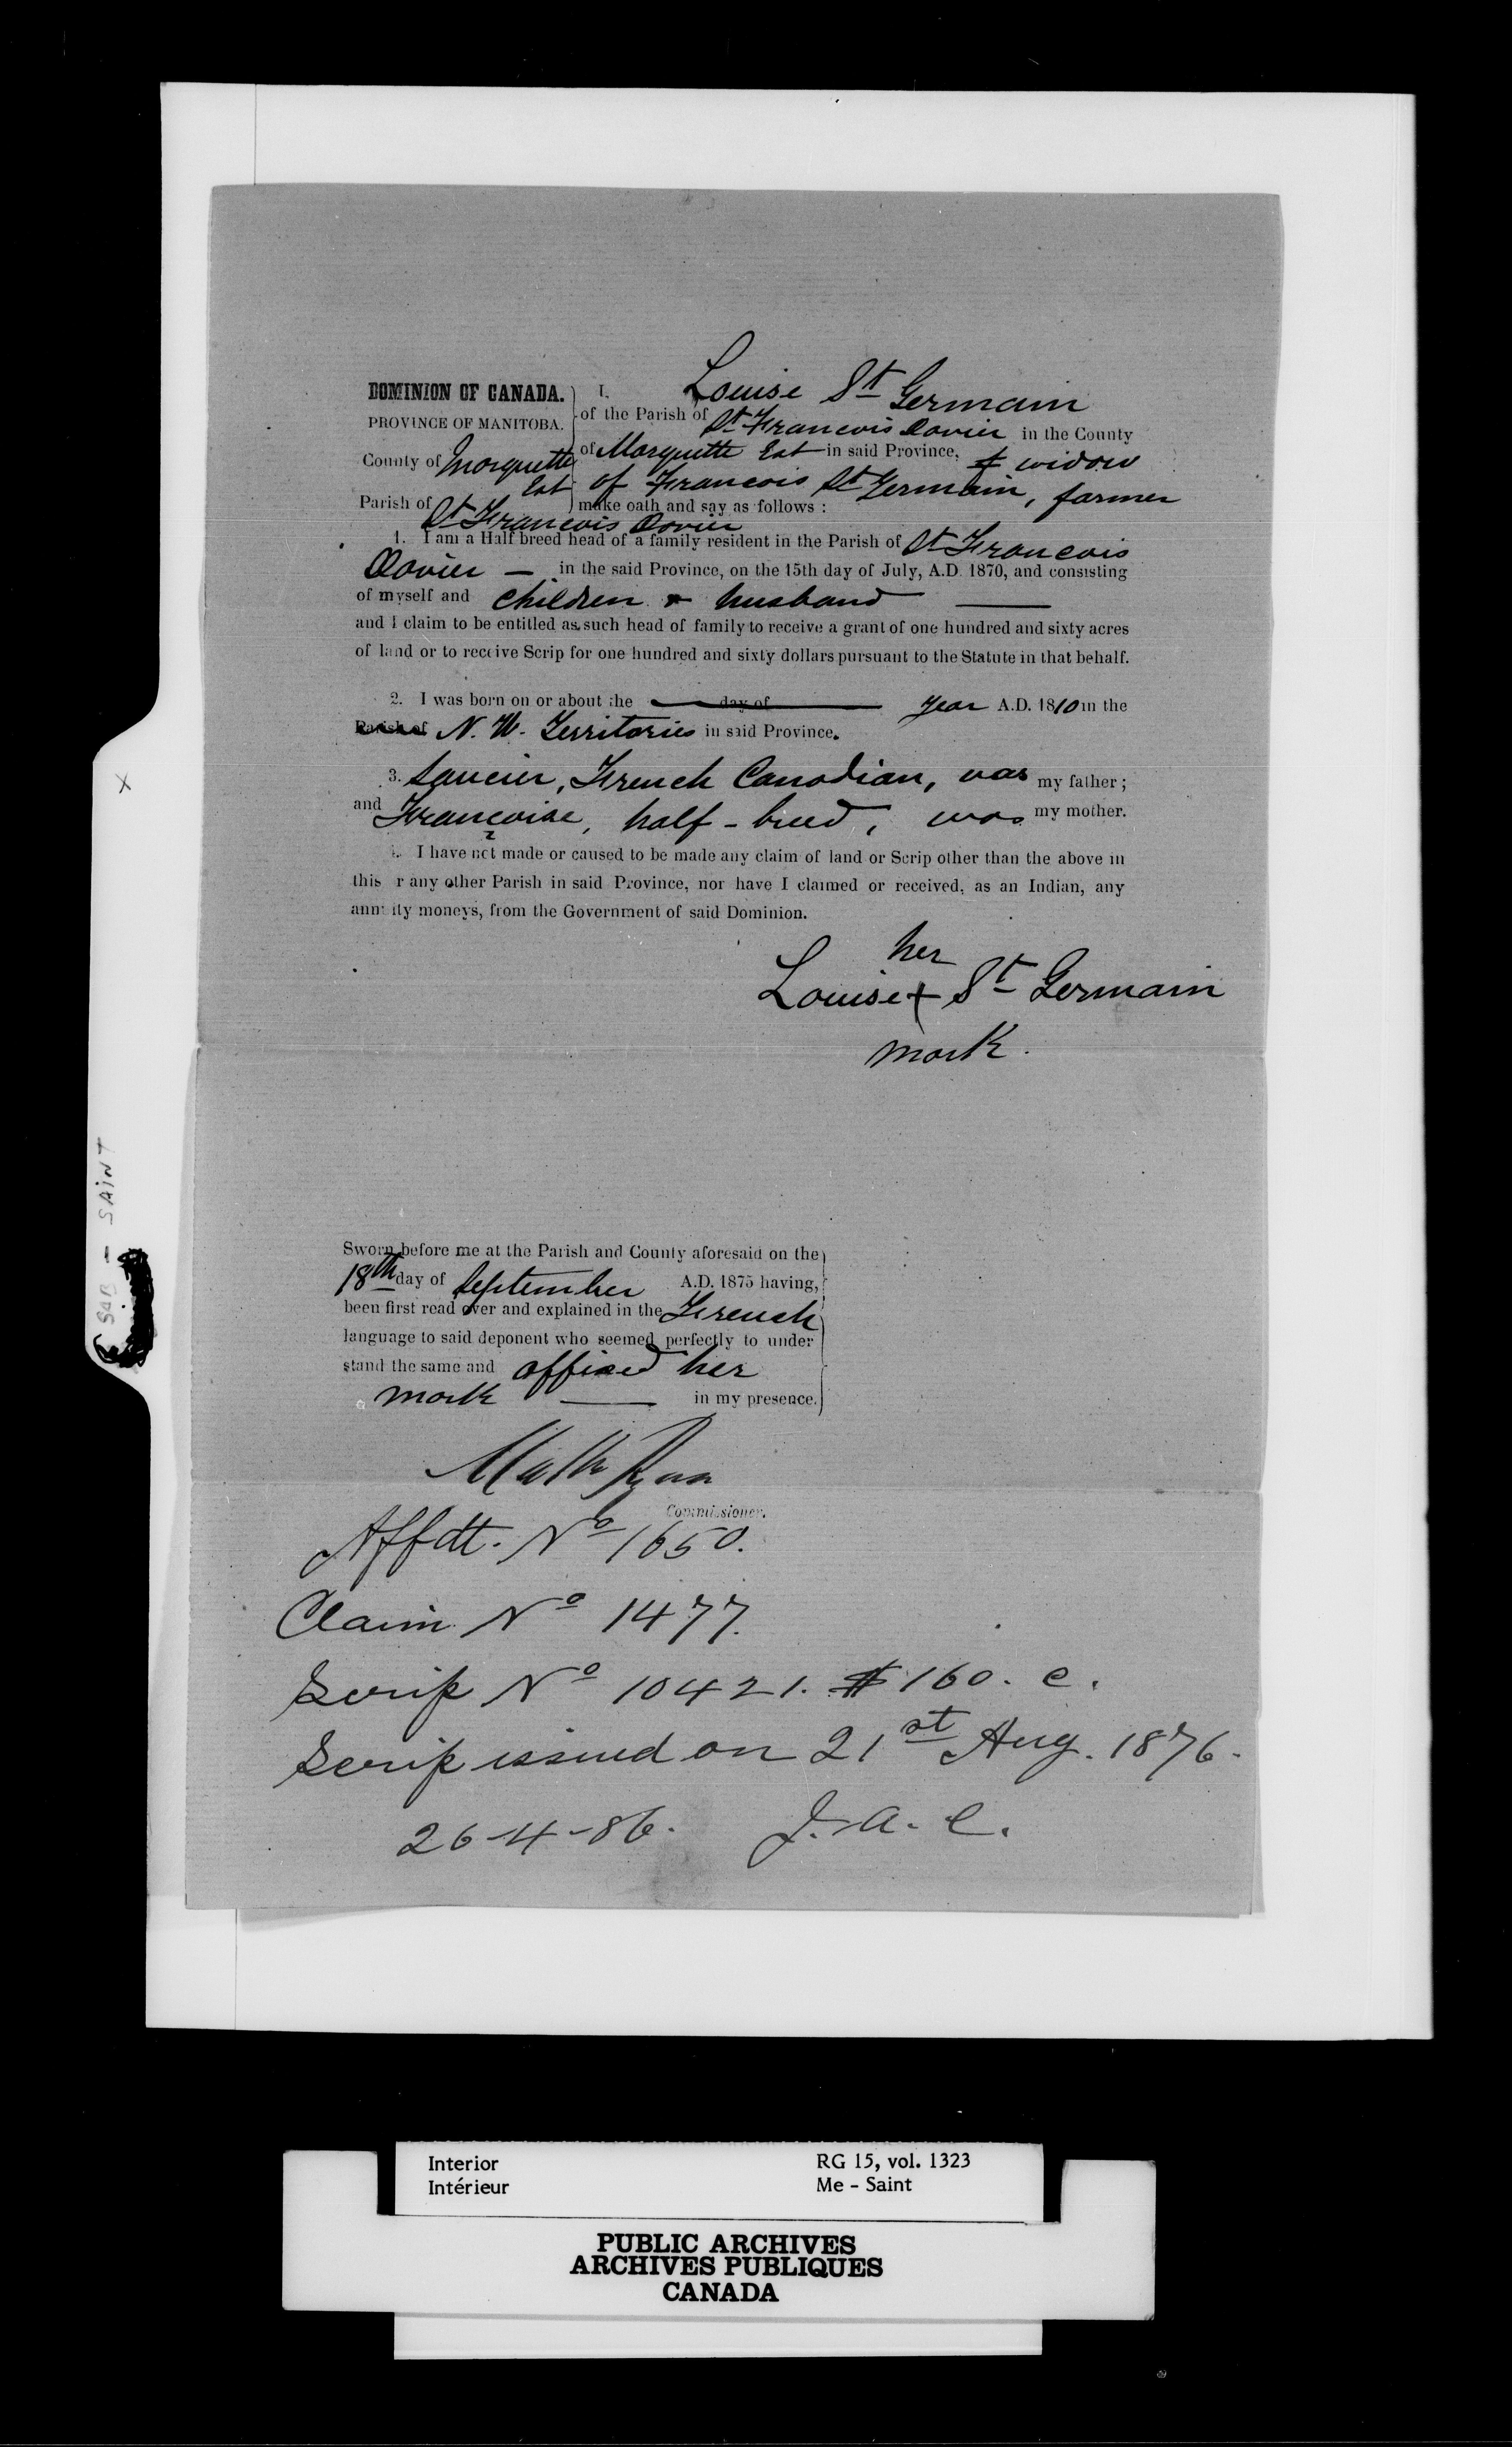 DOMINION OF CANADA.
PROVINCE OF MANITOBA.
County of Marquette
Est
Parish of
St Francois Xavier
I, Louise St Germain
of the Parish of St Francois Xavier in the County
of Marquette Est in said Province, widow
of Francois St Germain, farmer
make oath and say as follows :
1. I am a Half breed head of a family resident in the Parish of St Francois
Xavier — in the said Province, on the 15th day of July, A.D. 1870, and consisting
of myself and children & husband —
and I claim to be entitled as such head of family to receive a grant of one hundred and sixty acres
of land or to receive Scrip for one hundred and sixty dollars pursuant to the Statute in that behalf.
2. I was born on or about the day of year A.D. 1810 in the
Parish of N. W. Territories in said Province.
3. Saucier, French Canadian, was my father ;
and Françoise, half-breed, was my mother.
4. I have not made or caused to be made any claim of land or Scrip other than the above in
this r any other Parish in said Province, nor have I claimed or received, as an Indian, any
annuity moneys, from the Government of said Dominion.
her
Louise + St Germain
mark.
Sworn before me at the Parish and County aforesaid on the
18th day of September A.D. 1875 having,
been first read over and explained in the French
language to said deponent who seemed perfectly to under
stand the same and affixed her
mark — in my presence.
Matt Ryan
Commissioner.
Affdt. No 1650.
Claim No 1477.
Scrip No 10421. $160. c.
Scrip issued on 21st Aug. 1876.
26-4-86. J. A. C.
X
SAB - SAINT
Interior
Intérieur
RG 15, vol. 1323
Me - Saint
PUBLIC ARCHIVES
ARCHIVES PUBLIQUES
CANADA